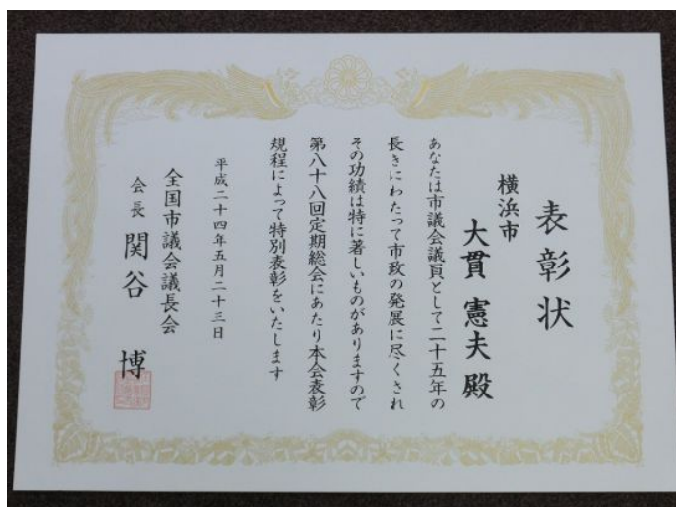 表彰状
横浜市
大貫憲夫殿
あなたは市議会議員として二十五年の
長きにわたって市政の発展に尽くされ
その功績は特に著しいものがありますので
第八十八回定期総会にあたり本会表彰
規程によって特別表彰をいたします
平成二十四年五月二十三日
全国市議会議長会
会長 関谷 博